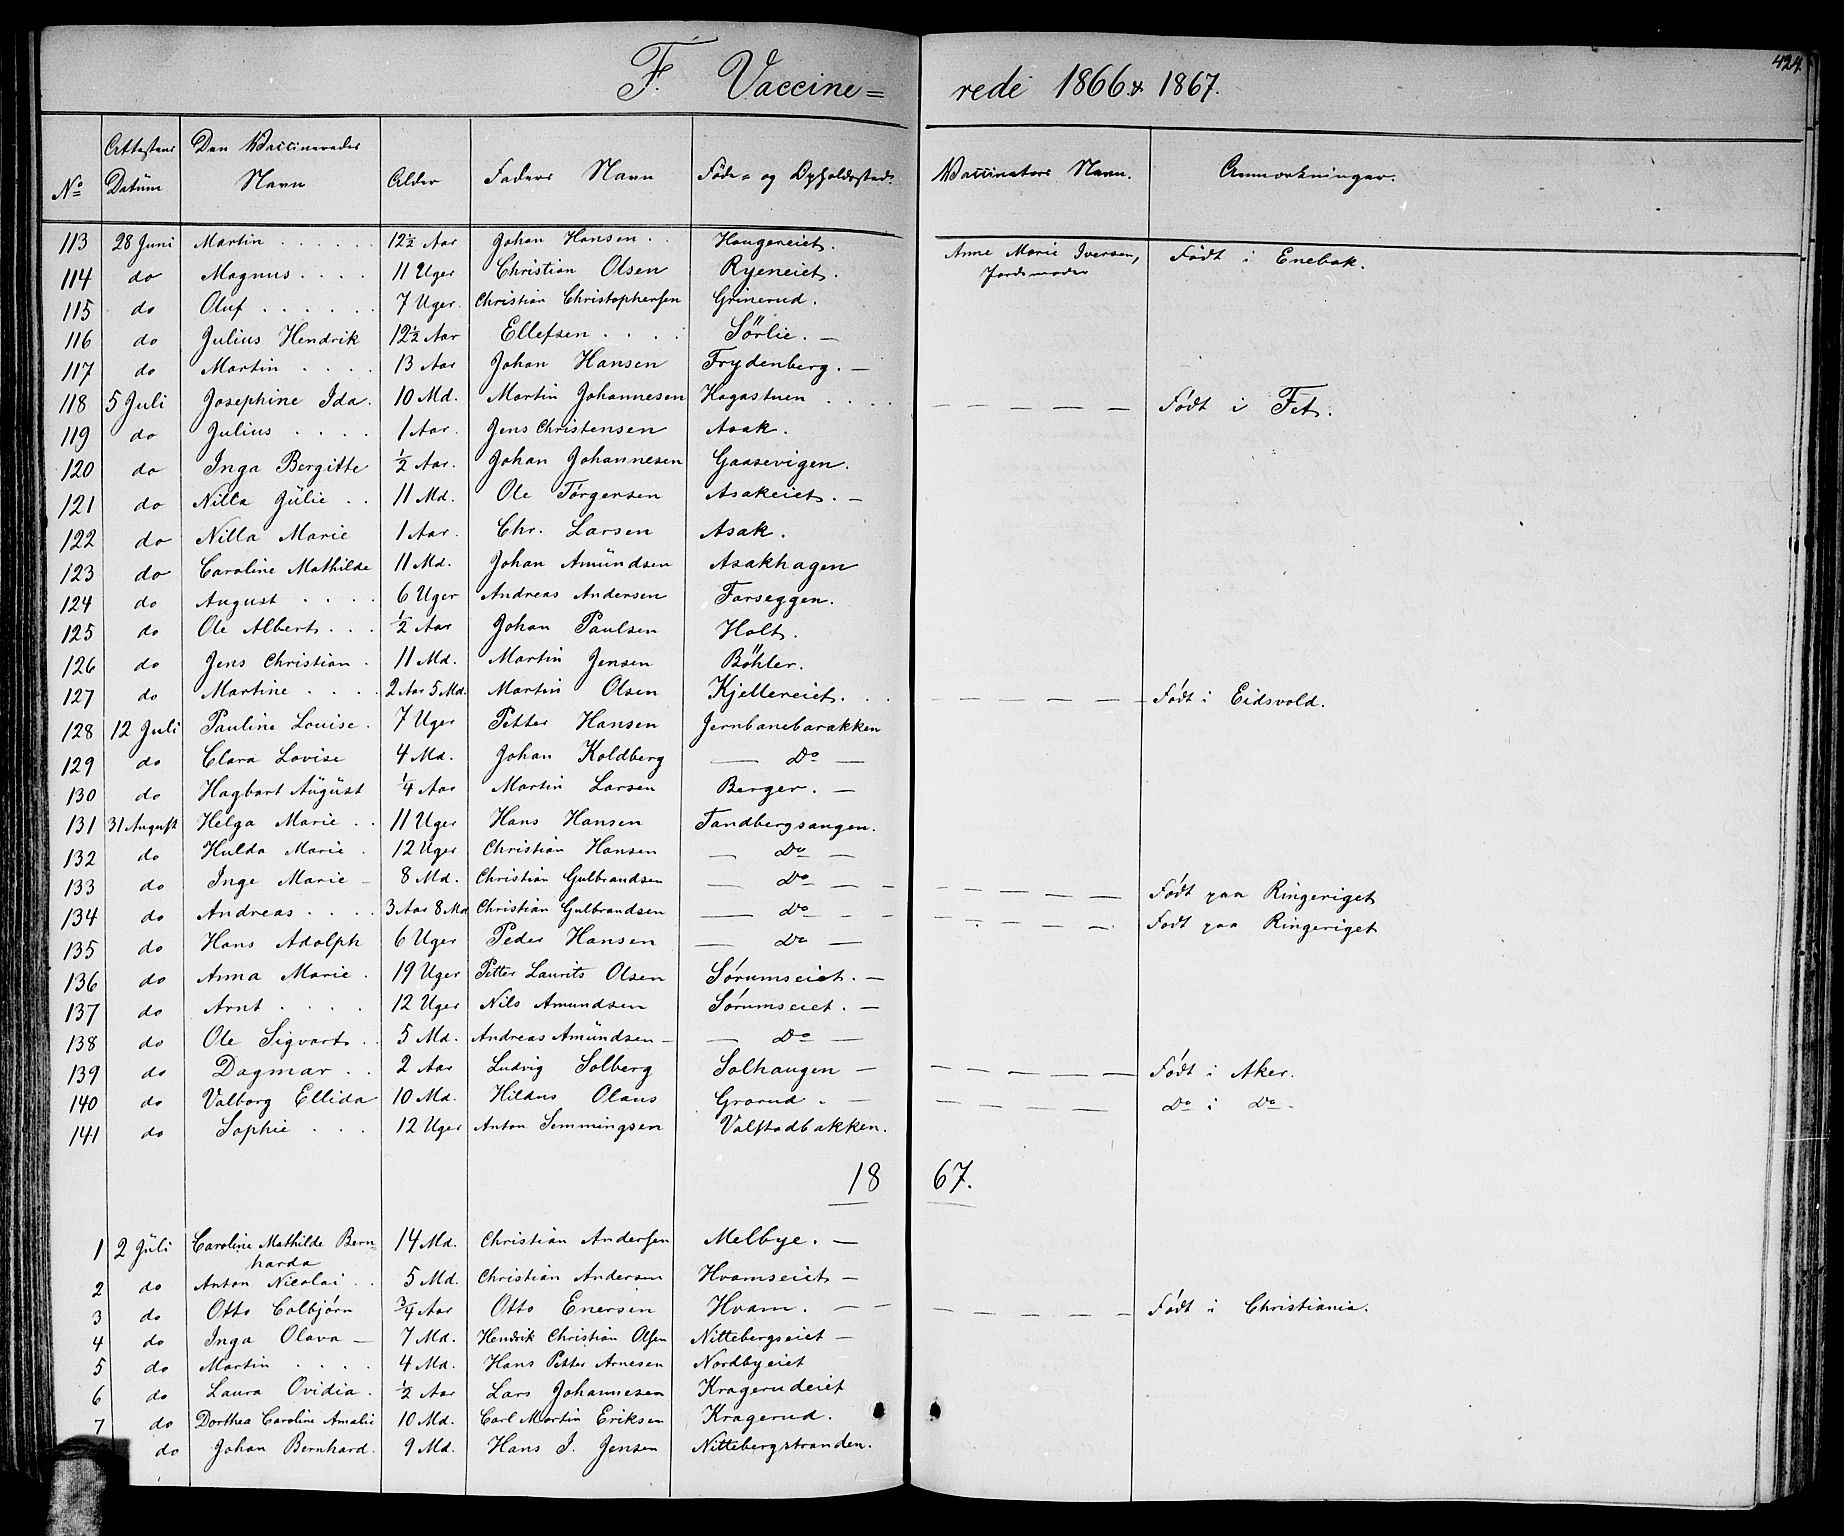 424.
F. Vaccine= rede 1866 & 1867.
No Attestens Datum Den Vaccineredes Navn Alder Faders Navn Føde= og Opholdssted. Vaccinators Navn. Anmærkninger.
113 28 Juni Martin 12½ Aar Johan Hansen Haugereiet. Anne Marie Iversen, Jordemoder Født i Enebak.
114 do Magnus 11 Uger Christian Olsen Ryeneiet.
115 do Oluf 7 Uger. Christian Christophersen Grinerud.
116 do Julius Hendrik 12½ Aar Ellefsen Sörlie. —
117 do Martin 13 Aar Johan Hansen Frydenberg. —
118 5 Juli Josephine Ida. 10 Md. Martin Johannesen Hagastuen — — — — — Født i Fet.
119 do Julius 1 Aar. Jens Christensen Asak.
120 do Inga Bergitte ½ Aar. Johan Johannesen Gaasevigen.
121 do Nilla Jülie 11 Md. Ole Törgersen Asakeiet. —
122 do Nilla Marie 1 Aar. Chr. Larsen Asak.
123 do Caroline Mathilde 11 Md. Johan Amündsen Asakhagen
124 do August 6 Uger Andreas Andersen Farseggen.
125 do Ole Albert ½ Aar Johan Paulsen Holt.
126 do Jens Christian 11 Md. Martin Jensen Böhler.
127 do Martine 2 Aar 5 Md. Martin Olsen Kjellereiet. — — — — — Født i Eidsvold.
128 12 Juli Pauline Louise 7 Uger Petter Hansen Jernbanebarakken
129 do Clara Lovise 4 Md. Johan Koldberg — Do —
130 do Hagbart Aügüst ¼ Aar Martin Larsen Berger. —
131 31 August Helga Marie 11 Uger Hans Hansen Tandbergsangen.
132 do Hulda Marie 12 Uger Christian Hansen — Do —
133 do Inge Marie 8 Md. Christian Gulbrandsen — Do — — — — — — Født paa Ringeriget
134 do Andreas 3 Aar 8 Md Christian Gulbrandsen — Do — — — — — — Født paa Ringeriget
135 do Hans Adolph 6 Uger Peder Hansen — Do —
136 do Anna Marie 19 Uger Petter Laurits Olsen Sørumseiet. —
137 do Arnt 12 Uger Nils Amundsen Sørumseiet. —
138 do Ole Sigvart 5 Md. Andreas Amündsen — — Do —
139 do Dagmar 2 Aar Ludvig Solberg Solhaugen — — — — — — Født i Aker.
140 do Valborg Ellida 10 Md. Hildus Olaus Grorud. — — — — — Do i Do.
141 do Sophie 12 Uger Anton Semmingsen Valstadbakken.
1867.
1 2 Jüli Caroline Mathilde Bern=
harda 14 Md. Christian Andersen Melbye. —
2 do Anton Nicolai 5 Md. Christian Andersen Hvamseiet —
3 do Otto Colbjørn ¾ Aar Otto Enersen Hvam. — — — — — — Født i Christiania.
4 do Inga Olava — 7 Md. Hendrik Christian Olsen Nittebergseiet —
5 do Martin 4 Md. Hans Petter Arnesen Nordbyeiet
6 do Laura Ovidia ½ Aar Lars Johannesen Kragerudeiet
7 do Dorthea Caroline Amalie 10 Md. Carl Martin Eriksen Kragerud.
do Johan Bernhard. 9 Md. Hans J. Jensen Nittebergstranden.